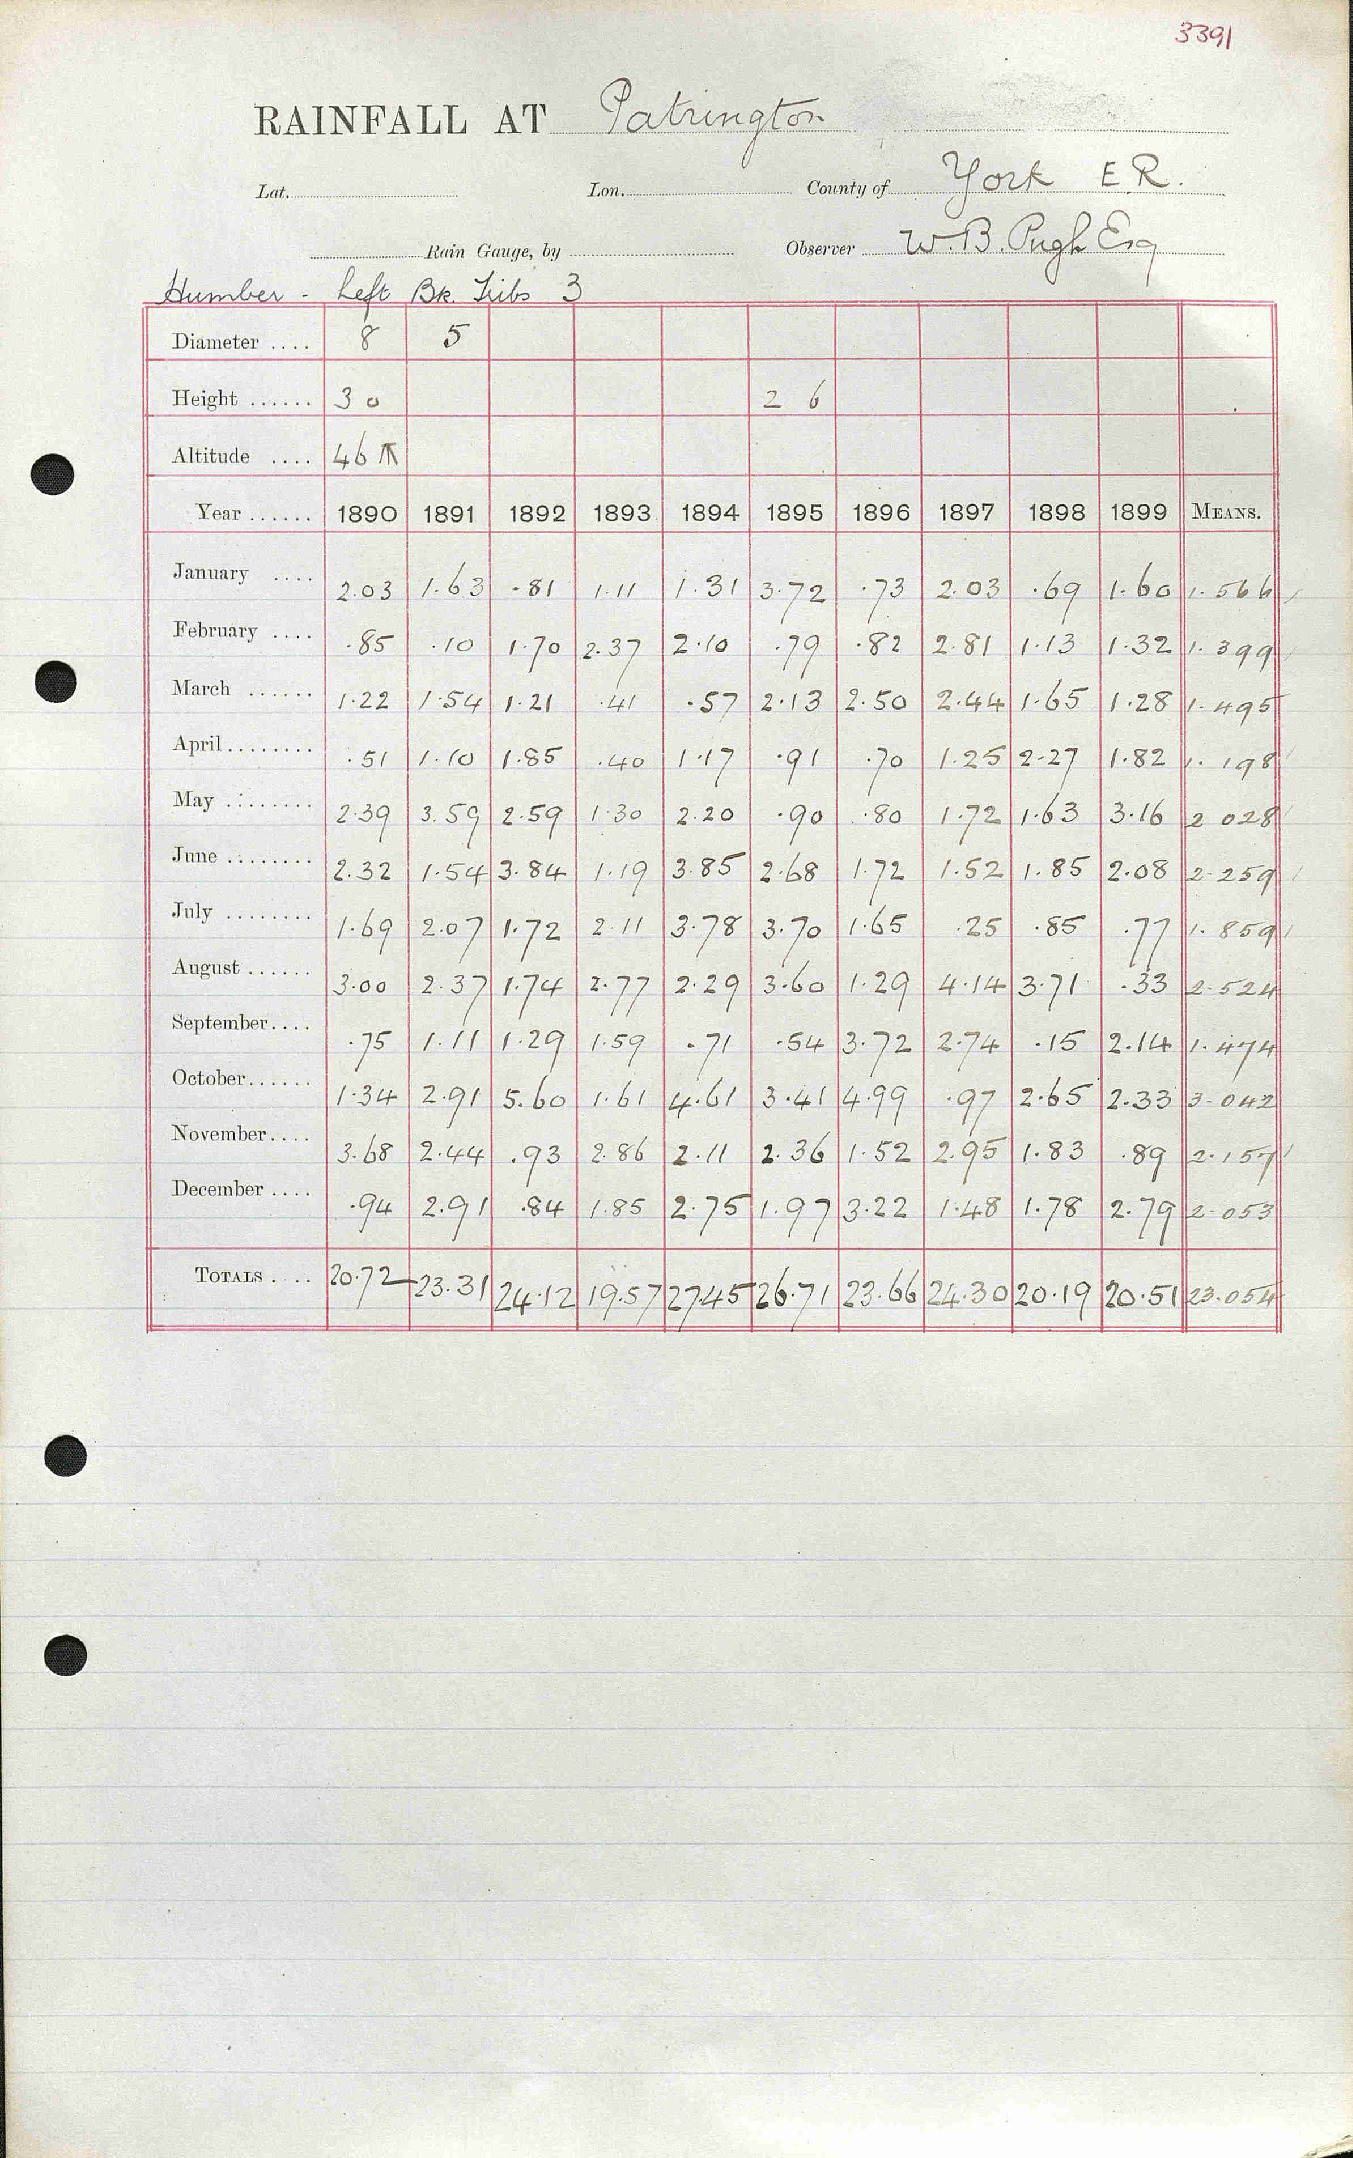 3391
RAINFALL AT Patrington
Lat. Lon. County of York E.R.
Rain Gauge, by Observer W. B. Pugh Esq
Humber - Left Bk. Tribs 3
Diameter .... 8 5
Height ...... 3 0 2 6
Altitude .... 46
Year ...... 1890 1891 1892 1893 1894 1895 1896 1897 1898 1899 MEANS.
January .... 2.03 1.63 .81 1.11 1.31 3.72 .73 2.03 .69 1.60 1.566
February .... .85 .10 1.70 2.37 2.10 .79 .82 2.81 1.13 1.32 1.399
March ...... 1.22 1.54 1.21 .41 .57 2.13 2.50 2.44 1.65 1.28 1.495
April........ .51 1.10 1.85 .40 1.17 .91 .70 1.25 2.27 1.82 1.198
May ........ 2.39 3.59 2.59 1.30 2.20 .90 .80 1.72 1.63 3.16 2 028
June ........ 2.32 1.54 3.84 1.19 3.85 2.68 1.72 1.52 1.85 2.08 2.259
July ........ 1.69 2.07 1.72 2.11 3.78 3.70 1.65 .25 .85 .77 1.859
August ...... 3.00 2.37 1.74 2.77 2.29 3.60 1.29 4.14 3.71 .33 2.524
September.... .75 1.11 1.29 1.59 .71 .54 3.72 2.74 .15 2.14 1.474
October...... 1.34 2.91 5.60 1.61 4.61 3.41 4.99 .97 2.65 2.33 3.042
November.... 3.68 2.44 .93 2.86 2.11 2.36 1.52 2.95 1.83 .89 2.157
December .... .94 2.91 .84 1.85 2.75 1.97 3.22 1.48 1.78 2.79 2.053
TOTALS .... 20.72 23.31 24.12 19.57 27.45 26.71 23.66 24.30 20.19 20.51 23.054